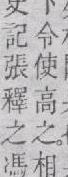 記張釋之馮
下令使高之。相